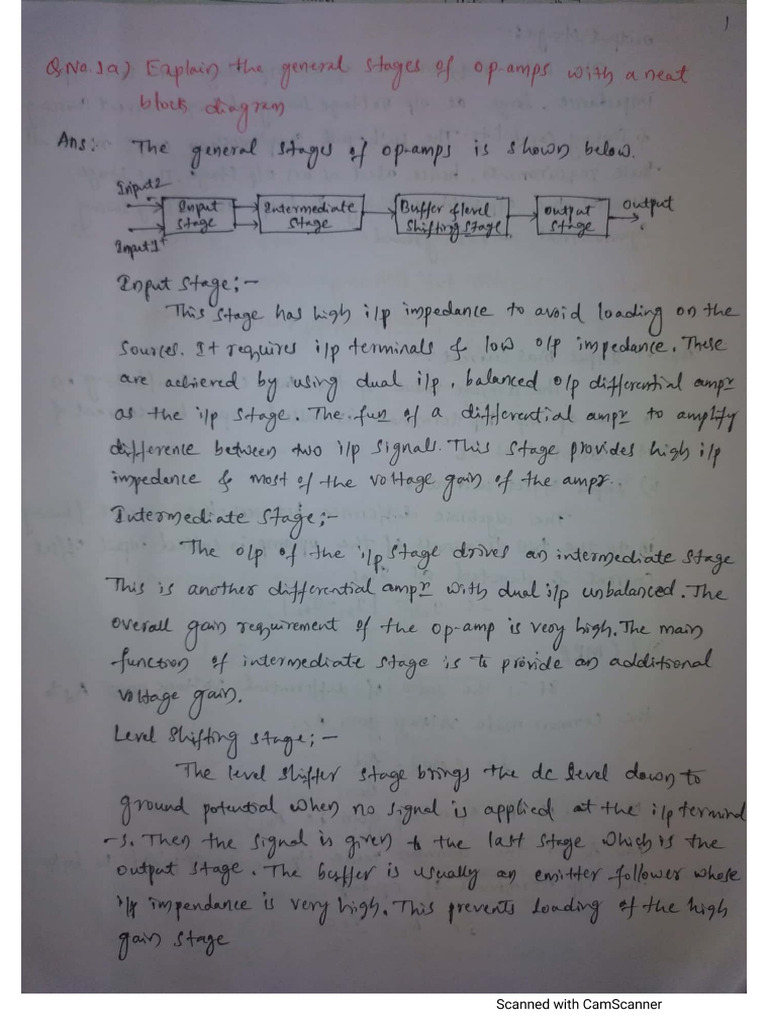 1
Q.No.1a) Explain the general stages of op-amps with a neat
block diagram
Ans:- The general stages of op-amps is shown below.
Input2
Input
Stage
Intermediate
Stage
Buffer & level
Shifting Stage
Output
Stage
Output
Input1
Input Stage:-
This stage has high i/p impedance to avoid loading on the
Sources. It requires i/p terminals & low o/p impedance. These
are achieved by using dual i/p, balanced o/p differential ampr
as the i/p stage. The fun of a differential ampr to amplify
difference between two i/p signals. This stage provides high i/p
impedance & most of the voltage gain of the ampr.
Intermediate Stage:-
The o/p of the i/p stage drives an intermediate stage
This is another differential ampr with dual i/p unbalanced. The
overall gain requirement of the op-amp is very high. The main
function of intermediate stage is to provide an additional
voltage gain.
Level Shifting stage:-
The level shifter stage brings the dc level down to
ground potential when no signal is applied at the i/p terminal
-s. Then the signal is given to the last stage which is the
output stage. The buffer is usually an emitter follower whose
i/p impendance is very high. This prevents loading of the high
gain stage
Scanned with CamScanner